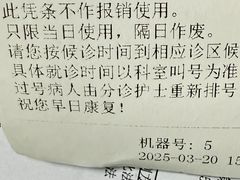 此凭条不作报销使用。
只限当日使用，隔日作废。
请您按候诊时间到相应诊区候
具体就诊时间以科室叫号为准
过号病人由分诊护士重新排号
祝您早日康复！
机器号：5
2025-03-20 15